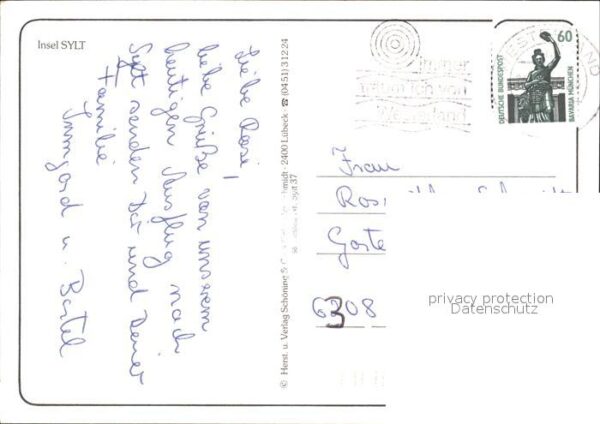 Insel SYLT
Liebe Rosi,
liebe Grüße von unserem
heutigen Ausflug nach
Sylt senden Dir und Deiner
Familie
Irmgard u. Bärbel
© Herst. u. Verlag Schöning & C midt · 2400 Lübeck · ☎ (0451) 31224
immer
träum ich von
Westerland
60
DEUTSCHE BUNDESPOST
BAVARIA MÜNCHEN
Frau
Ros
Garte
6308
3
privacy protection
Datenschutz